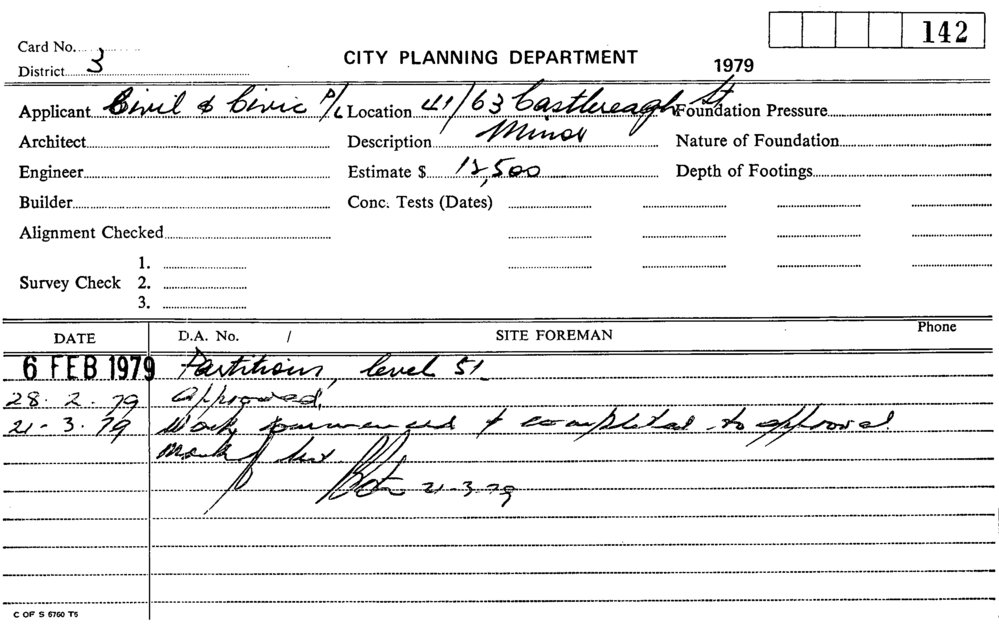 142
Card No.
CITY PLANNING DEPARTMENT
District 3
1979
Applicant Civil & Civic P/L Location 41/63 Castlereagh St Foundation Pressure
Architect Description Minor Nature of Foundation
Engineer Estimate $ 12,500 Depth of Footings
Builder Conc. Tests (Dates)
Alignment Checked
1.
Survey Check 2.
3.
DATE D.A. No. / SITE FOREMAN Phone
6 FEB 1979 Partitions, level 51
28. 2. 79 Approved.
21-3.79 Work commenced & completed to approval.
21-3.79
C OF S 6760 T5